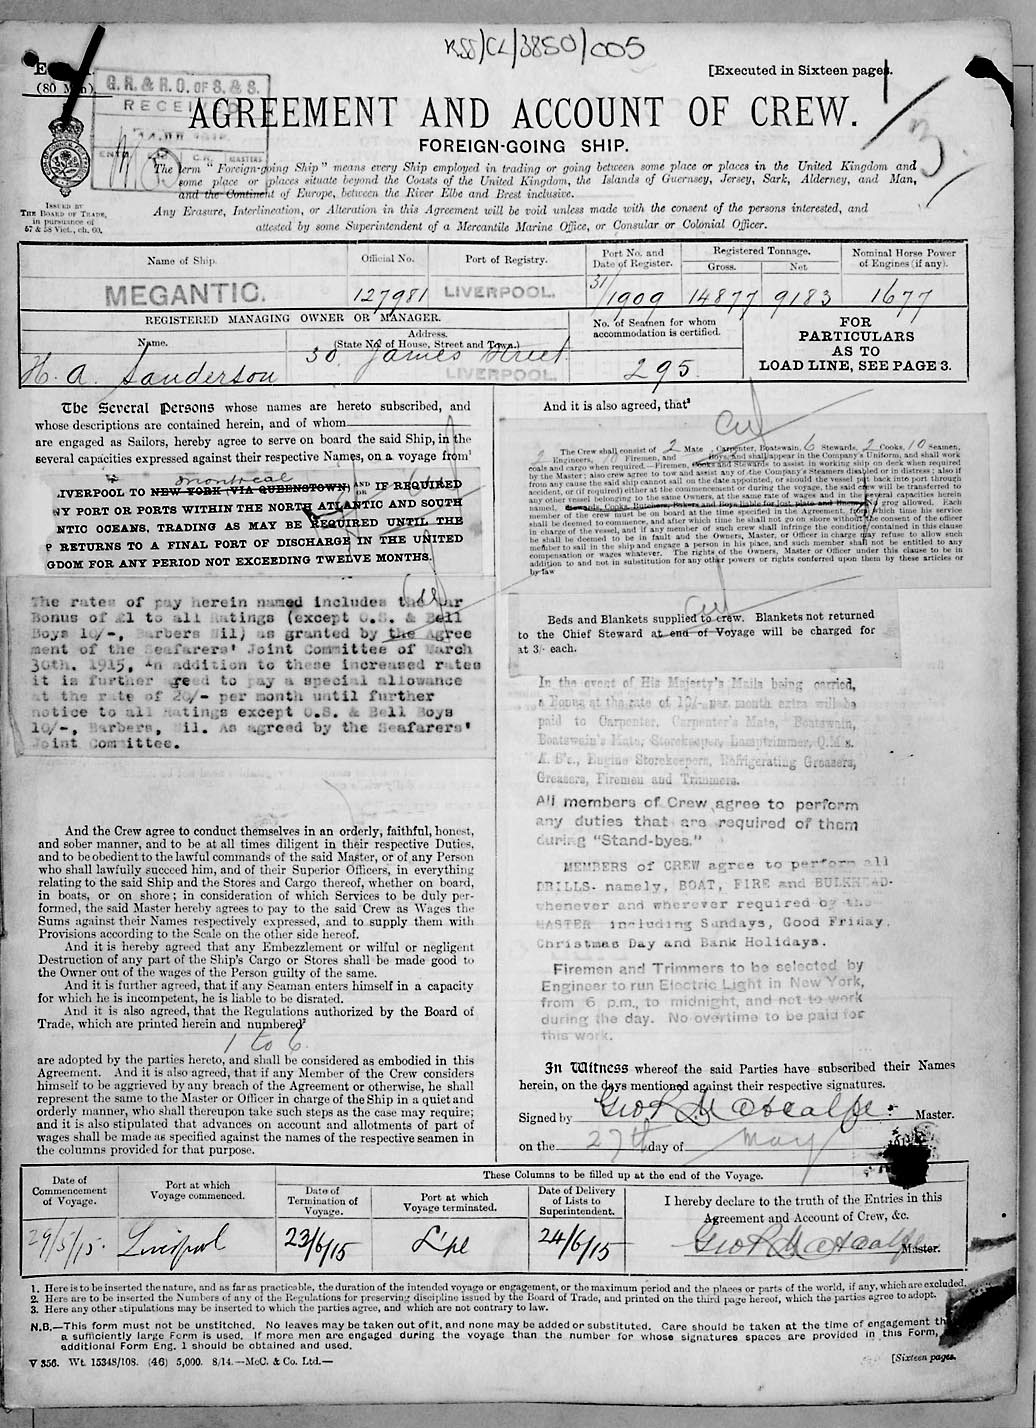 RSS/CL/3850/005
[Executed in Sixteen pages.
G. R. & R. O. OF S. & S.
RECEIVED
AGREEMENT AND ACCOUNT OF CREW.
FOREIGN-GOING SHIP.
The term "Foreign-going Ship" means every Ship employed in trading or going between some place or places in the United Kingdom and
some place or places situate beyond the Coasts of the United Kingdom, the Islands of Guernsey, Jersey, Sark, Alderney, and Man,
and the Continent of Europe, between the River Elbe and Brest inclusive.
Any Erasure, Interlineation, or Alteration in this Agreement will be void unless made with the consent of the persons interested, and
attested by some Superintendent of a Mercantile Marine Office, or Consular or Colonial Officer.
ISSUED BY
THE BOARD OF TRADE,
in pursuance of
57 & 58 Vict., ch. 60.
Name of Ship. Official No. Port of Registry. Port No. and Date of Register. Registered Tonnage. Gross. Net. Nominal Horse Power of Engines (if any).
MEGANTIC. 127981 LIVERPOOL. 31/1909 14877 9183 1677
REGISTERED MANAGING OWNER OR MANAGER.
Name. Address. (State No. of House, Street and Town.)
No. of Seamen for whom accommodation is certified.
H. A. Sanderson 30 James Street LIVERPOOL. 295.
FOR
PARTICULARS
AS TO
LOAD LINE, SEE PAGE 3.
The Several Persons whose names are hereto subscribed, and
whose descriptions are contained herein, and of whom
are engaged as Sailors, hereby agree to serve on board the said Ship, in the
several capacities expressed against their respective Names, on a voyage from¹
montreal
LIVERPOOL TO NEW YORK (VIA QUEENSTOWN) AND OR IF REQUIRED
NY PORT OR PORTS WITHIN THE NORTH ATLANTIC AND SOUTH
NTIC OCEANS, TRADING AS MAY BE REQUIRED UNTIL THE
P RETURNS TO A FINAL PORT OF DISCHARGE IN THE UNITED
GDOM FOR ANY PERIOD NOT EXCEEDING TWELVE MONTHS.
The rates of pay herein named includes the War
Bonus of £1 to all Ratings (except O.S. & Bell
Boys 10/-, Barbers Nil) as granted by the Agree
ment of the Seafarers' Joint Committee of March
30th. 1915, in addition to these increased rates
it is further agreed to pay a special allowance
at the rate of 20/- per month until further
notice to all Ratings except O.S. & Bell Boys
10/-, Barbers, Nil. As agreed by the Seafarers'
Joint Committee.
And the Crew agree to conduct themselves in an orderly, faithful, honest,
and sober manner, and to be at all times diligent in their respective Duties,
and to be obedient to the lawful commands of the said Master, or of any Person
who shall lawfully succeed him, and of their Superior Officers, in everything
relating to the said Ship and the Stores and Cargo thereof, whether on board,
in boats, or on shore; in consideration of which Services to be duly per-
formed, the said Master hereby agrees to pay to the said Crew as Wages the
Sums against their Names respectively expressed, and to supply them with
Provisions according to the Scale on the other side hereof.
And it is hereby agreed that any Embezzlement or wilful or negligent
Destruction of any part of the Ship's Cargo or Stores shall be made good to
the Owner out of the wages of the Person guilty of the same.
And it is further agreed, that if any Seaman enters himself in a capacity
for which he is incompetent, he is liable to be disrated.
And it is also agreed, that the Regulations authorized by the Board of
Trade, which are printed herein and numbered²
1 to 6.
are adopted by the parties hereto, and shall be considered as embodied in this
Agreement. And it is also agreed, that if any Member of the Crew considers
himself to be aggrieved by any breach of the Agreement or otherwise, he shall
represent the same to the Master or Officer in charge of the Ship in a quiet and
orderly manner, who shall thereupon take such steps as the case may require;
and it is also stipulated that advances on account and allotments of part of
wages shall be made as specified against the names of the respective seamen in
the columns provided for that purpose.
And it is also agreed, that³
The Crew shall consist of 2 Mate Carpenter, Boatswain, 6 Stewards, 2 Cooks, 10 Seamen,
2 Engineers, 10 Firemen, and Boys, and shall appear in the Company's Uniform, and shall work
coals and cargo when required.—Firemen, Cooks and Stewards to assist in working ship on deck when required
by the Master; also crew agree to tow and assist any of the Company's Steamers disabled or in distress; also if
from any cause the said ship cannot sail on the date appointed, or should the vessel put back into port through
accident, or (if required) either at the commencement or during the voyage, the said crew to be transferred to
any other vessel belonging to the same Owners, at the same rate of wages and in the several capacities herein
named. Stewards, Cooks, Butchers, Bakers and Boys liable for lost plate and linen. No grog allowed. Each
member of the crew must be on board at the time specified in the Agreement, from which time his service
shall be deemed to commence, and after which time he shall not go on shore without the consent of the officer
in charge of the vessel, and if any member of such crew shall infringe the condition contained in this clause
he shall be deemed to be in fault and the Owners, Master, or Officer in charge may refuse to allow such
member to sail in the ship and engage a person in his place, and such member shall not be entitled to any
compensation or wages whatever. The rights of the Owners, Master or Officer under this clause to be in
addition to and not in substitution for any other powers or rights conferred upon them by these articles or
by law
Beds and Blankets supplied to crew. Blankets not returned
to the Chief Steward at end of Voyage will be charged for
at 3/- each.
In the event of His Majesty's Mails being carried,
a Bonus at the rate of 10/- per month extra will be
paid to Carpenter, Carpenter's Mate, Boatswain,
Boatswain's Mate, Storekeeper, Lamptrimmer, Q.M's.
A. B's., Engine Storekeepers, Refrigerating Greasers,
Greasers, Firemen and Trimmers.
All members of Crew agree to perform
any duties that are required of them
during "Stand-byes."
MEMBERS of CREW agree to perform all
DRILLS- namely, BOAT, FIRE and BULKHEAD-
whenever and wherever required by the
MASTER including Sundays, Good Friday,
Christmas Day and Bank Holidays.
Firemen and Trimmers to be selected by
Engineer to run Electric Light in New York,
from 6 p.m., to midnight, and not to work
during the day. No overtime to be paid for
this work.
In Witness whereof the said Parties have subscribed their Names
herein, on the days mentioned against their respective signatures.
Signed by Geo R Metcalfe Master.
on the 27th day of May
Date of Commencement of Voyage. Port at which Voyage commenced. These Columns to be filled up at the end of the Voyage.
Date of Termination of Voyage. Port at which Voyage terminated. Date of Delivery of Lists to Superintendent. I hereby declare to the truth of the Entries in this Agreement and Account of Crew, &c.
29/5/15. Liverpool 23/6/15 L'pl 24/6/15 Geo R Metcalfe Master.
1. Here is to be inserted the nature, and as far as practicable, the duration of the intended voyage or engagement, or the maximum period and the places or parts of the world, if any, which are excluded.
2. Here are to be inserted the Numbers of any of the Regulations for preserving discipline issued by the Board of Trade, and printed on the third page hereof, which the parties agree to adopt.
3. Here any other stipulations may be inserted to which the parties agree, and which are not contrary to law.
N.B.—This form must not be unstitched. No leaves may be taken out of it, and none may be added or substituted. Care should be taken at the time of engagement th
a sufficiently large Form is used. If more men are engaged during the voyage than the number for whose signatures spaces are provided in this Form,
additional Form Eng. 1 should be obtained and used.
V 356. Wt. 15348/108. (46) 5,000. 8/14.—McC. & Co. Ltd.—
[Sixteen pages.